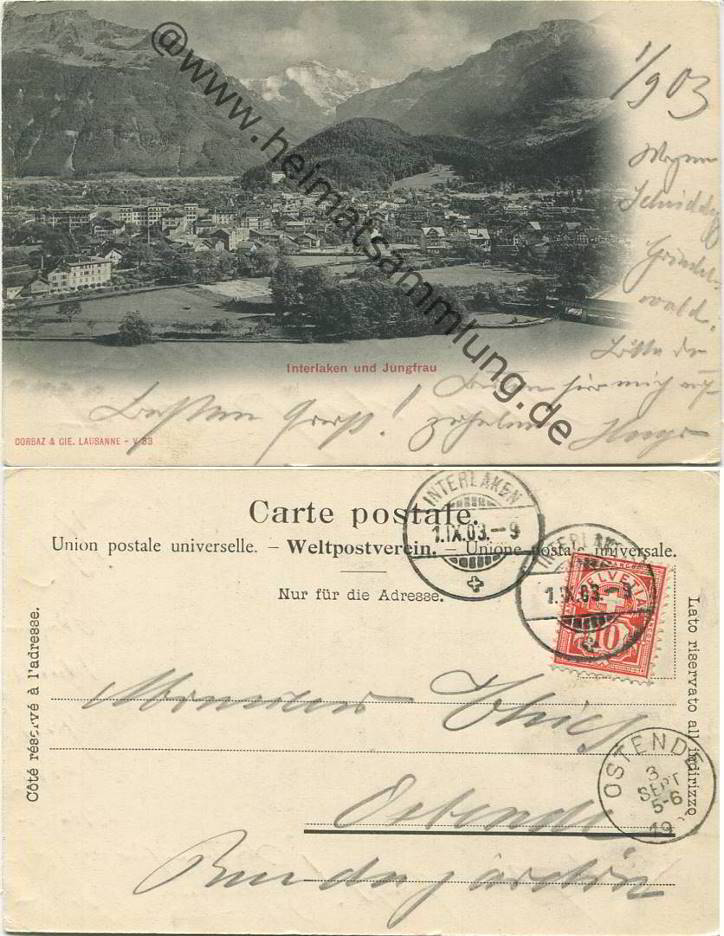 @www.heimatsammlung.de
1/9 03
Grindel-
wald.
Bitte
für mich auf
Interlaken und Jungfrau
Besten Gruss!
CORBAZ & CIE. LAUSANNE - V 33
Carte postale.
Union postale universelle. – Weltpostverein. – Unione postale universale.
Nur für die Adresse.
Côté réservé à l'adresse.
Lato riservato all'indirizzo
INTERLAKEN
1.IX.03.–9
INTERLAKEN
1.IX.03.–9
HELVETIA
10
Monsieur
Ostende
OSTENDE
3
SEPT
5-6
19